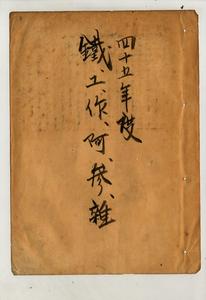 四十五年度
鐵、工、作、阿、參、雜